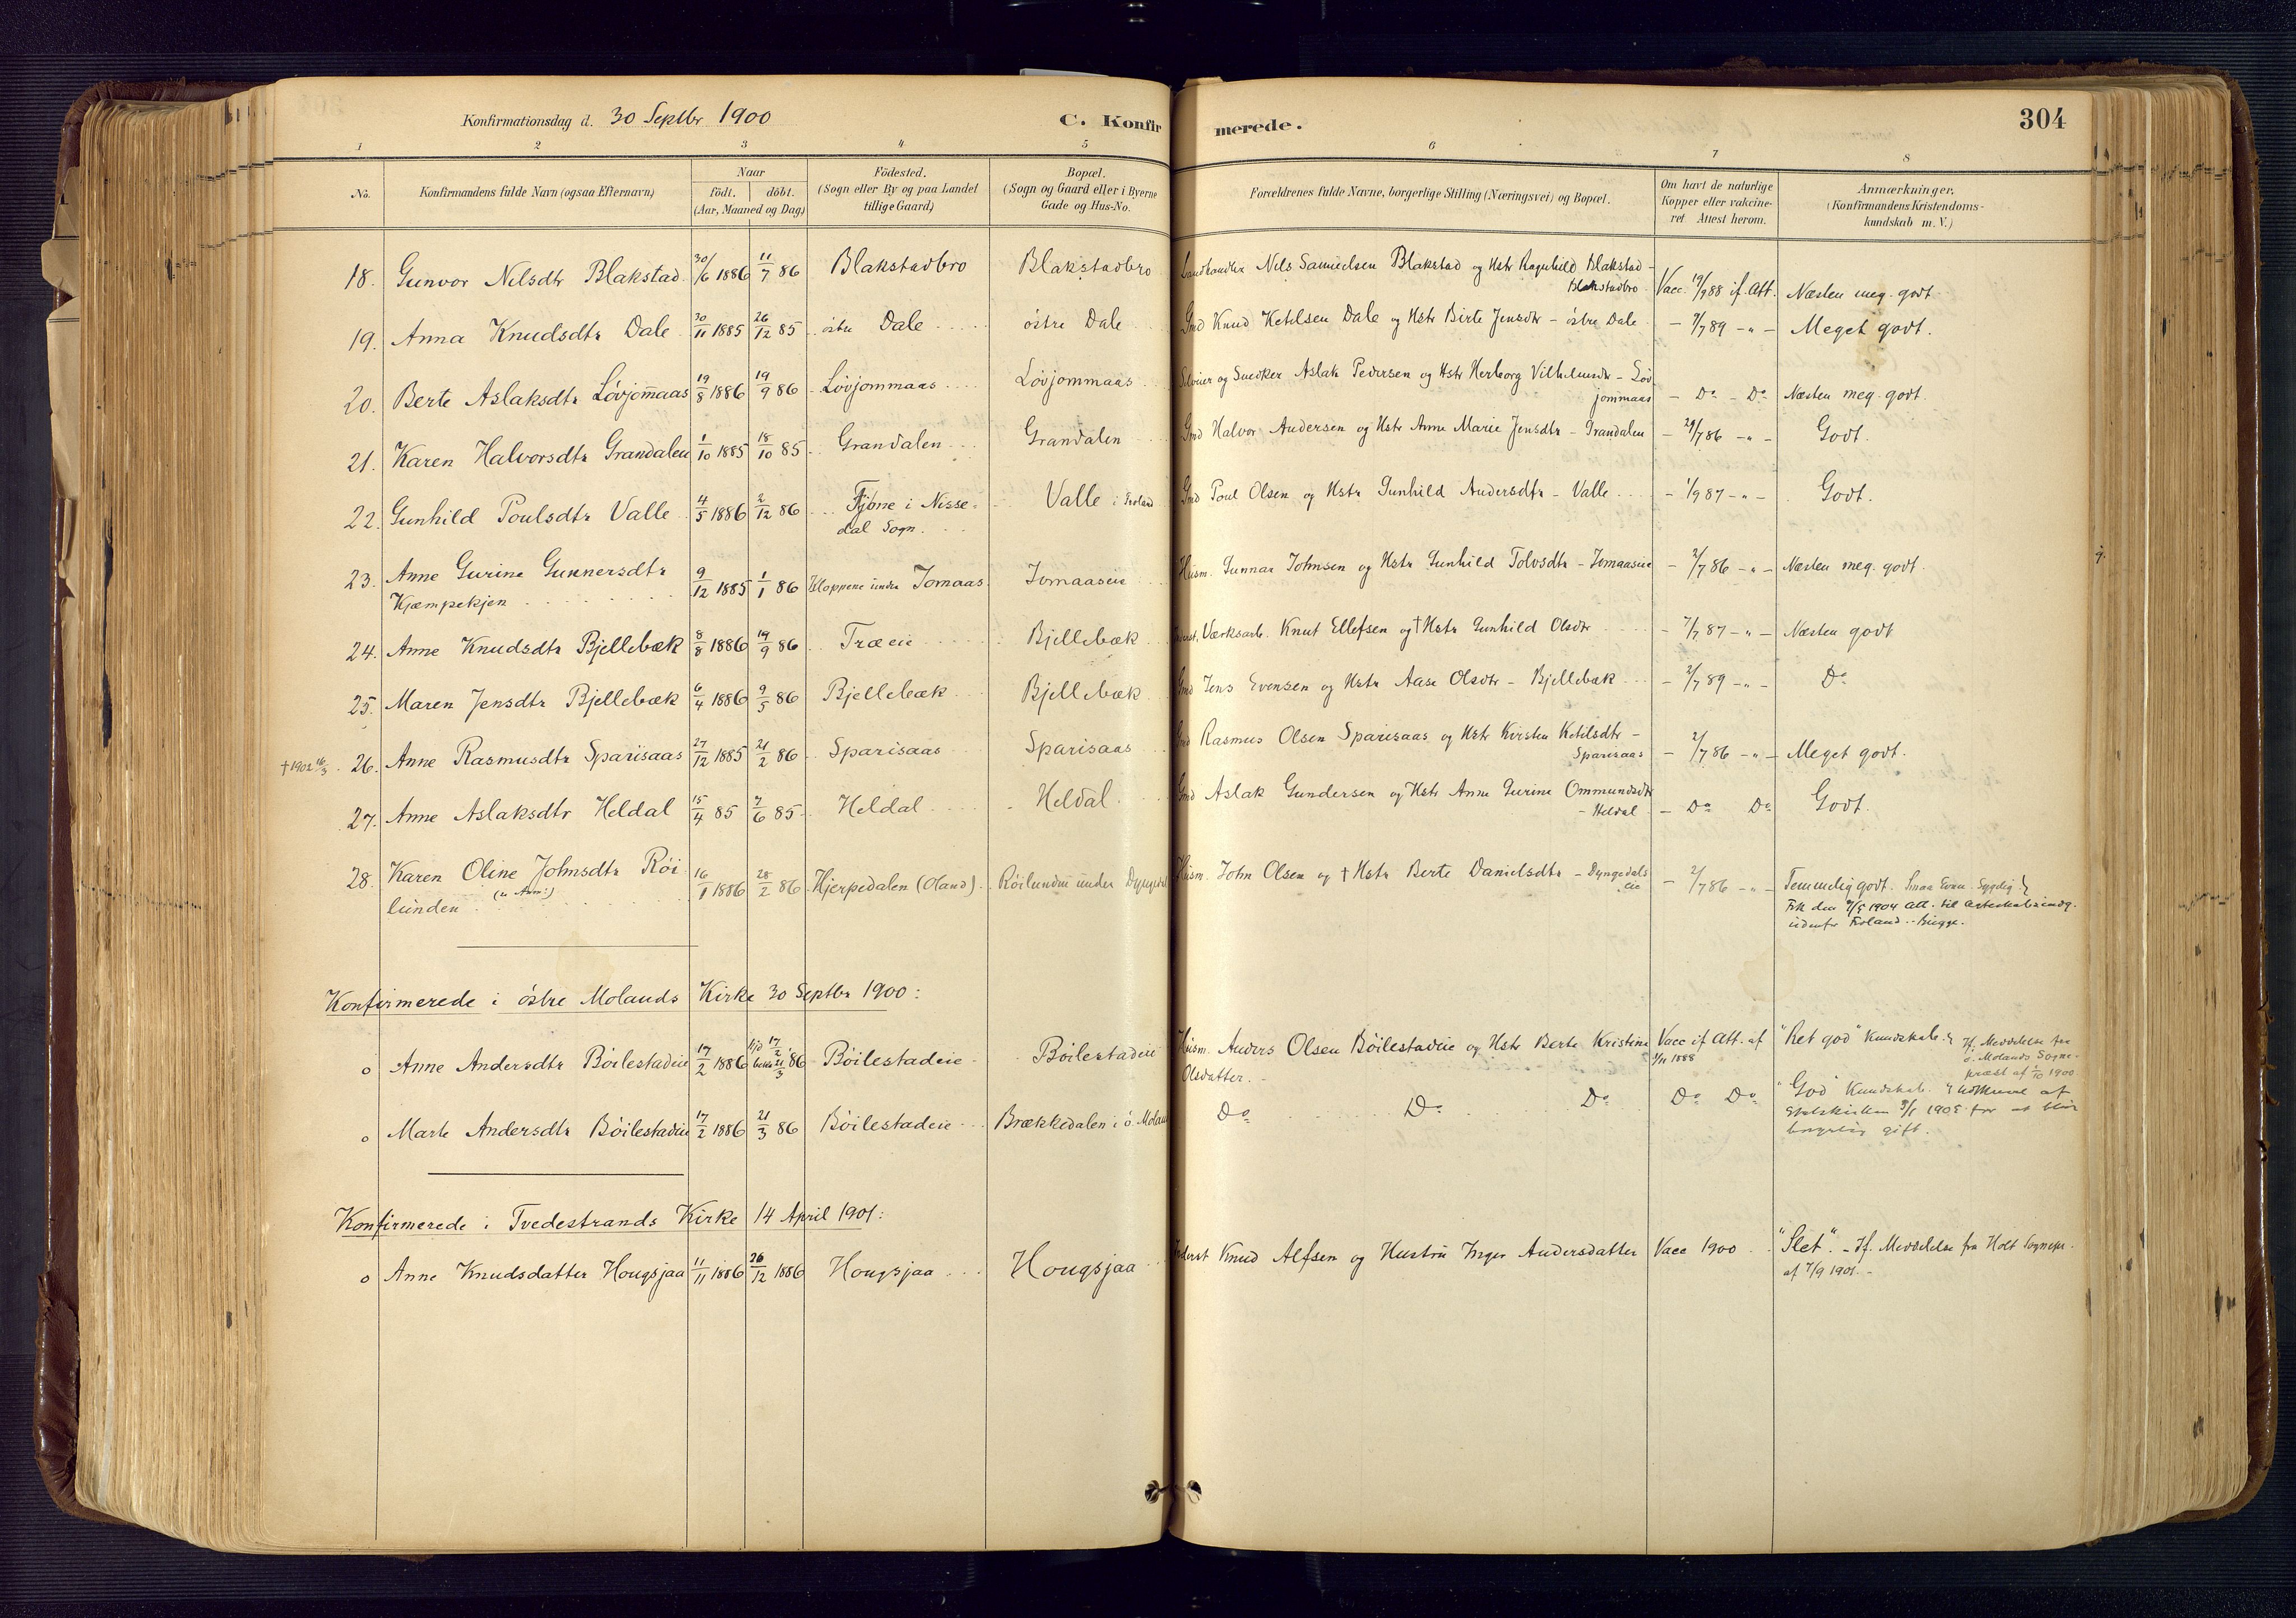 Konfirmationsdag d. 30 Septbr 1900 C. Konfirmerede. 304
1 2 3 4 5 6 7 8
No. Konfirmandens fulde Navn (ogsaa Efternavn) Naar födt. döbt. (Aar, Maaned og Dag) Födested. (Sogn eller By og paa Landet tillige Gaard) Bopæl. (Sogn og Gaard eller i Byerne Gade og Hus-No. Forældrenes fulde Navne, borgerlige Stilling (Næringsvei) og Bopæl. Om havt de naturlige Kopper eller vakcineret Attest herom. Anmærkninger. (Konfirmandens Kristendomskundskab m. V.)
18. Gunvor Nilsdtr Blakstad 30/6 1886 11/7 86 Blakstadbro Blakstadbro Landhandler Nils Samuelsen Blakstad og Hstr Ragnhild Blakstad - Blakstadbro Vacc. 19/9 88 if. Att. Næsten meg. godt
19. Anna Knudsdtr Dale 30/11 1885 26/12 85 östre Dale östre Dale Grd Knud Ketilsen Dale og Hstr Birte Jensdtr - östre Dale - 7/7 89 - " - Meget godt.
20. Berte Aslaksdtr Lövjommaas 19/8 1886 19/9 86 Lövjommaas Lövjommaas Selveier og Snedker Aslak Pedersen og Hstr Herborg Vilhelmsdtr - Löv
jommaas - Do - Do Næsten meg. godt.
21. Karen Halvorsdtr Grandalen 1/10 1885 18/10 85 Grandalen Grandalen Grd Halvor Andersen og Hstr Anne Marie Jensdtr - Grandalen - 29/7 86 - " - Godt.
22. Gunhild Poulsdtr Valle 4/5 1886 2/12 86 Fjone i Nisse=
dal Sogn. Valle i Froland Grd Poul Olsen og Hstr Gunhild Andersdtr - Valle - 1/9 87 - " - Godt.
23. Anne Gurine Gunnersdtr
Kjæmpekjen 9/12 1885 1/1 86 Kloppene under Jomaas Jomaaseie Husm. Gunnar Johnsen og Hstr Gunhild Tolvsdtr - Jomaaseie - 2/7 86 - " - Næsten meg. godt.
24. Anne Knudsdtr Bjellebæk 8/8 1886 19/9 86 Træeie Bjellebæk Værksarb. Knut Ellefsen og † Hstr Gunhild Olsdtr - 7/7 87 - " - Næsten godt
25. Maren Jensdtr Bjellebæk 6/4 1886 9/5 86 Bjellebæk Bjellebæk Grd Jens Evensen og Hstr Aase Olsdtr - Bjellebæk - 2/7 89 - " - Do
† 1902 26. Anne Rasmusdtr Sparisaas 27/12 1885 21/2 86 Sparisaas Sparisaas Grd Rasmus Olsen Sparisaas og Hstr Kirsten Ketilsdtr -
Sparisaas - 2/7 86 - " - Meget godt.
27. Anne Aslaksdtr Heldal 15/4 85 7/6 85 Heldal Heldal Grd Aslak Gundersen og Hstr Anne Gurine Ommundsdtr
- Heldal - Do Do Godt.
28. Karen Oline Johnsdtr Röi
lunden 16/1 1886 28/2 86 Hjerpedalen (Oland) Röilunden under Dyngedal Husm. John Olsen og † Hstr Berte Danielsdtr - Dyngedals
eie - 2/7 86 - " - Temmelig godt. Smaa Evner.
Fik den 9/5 1904 Att. til
udenfor Froland.
Konfirmerede i östre Molands Kirke 30 Septbr 1900:
o Anne Andersdtr Böilestadeie 17/2 1886 21/3 86 Böilestadeie Böilestadeie Husm. Anders Olsen Böilestadeie og Hstr Berte Kristine
Olsdatter. - Vacc if Att. af
1/11 1888 "Ret god" Kundskab. If. Meddelelse fra
ö. Molands Sogne-
præst af 1/10 1900
o Marte Andersdtr Böilestadeie 17/2 1886 21/3 86 Böilestadeie Brækkedalen i ö. Moland Do Do Do Do Do "God" Kundskab. Udtraadt af
Statskirken 3/1 1905 for at blive
borgerlig gift.
Konfirmerede i Tvedestrands Kirke 14 April 1901:
o Anne Knudsdatter Hougsjaa 11/11 1886 26/12 1886 Hougsjaa Hougsjaa Inderst Knud Alfsen og Hustru Inger Andersdatter Vacc 1900 "Slet". - If. Meddelelse fra Holt Sognepr.
af 7/9 1901. -